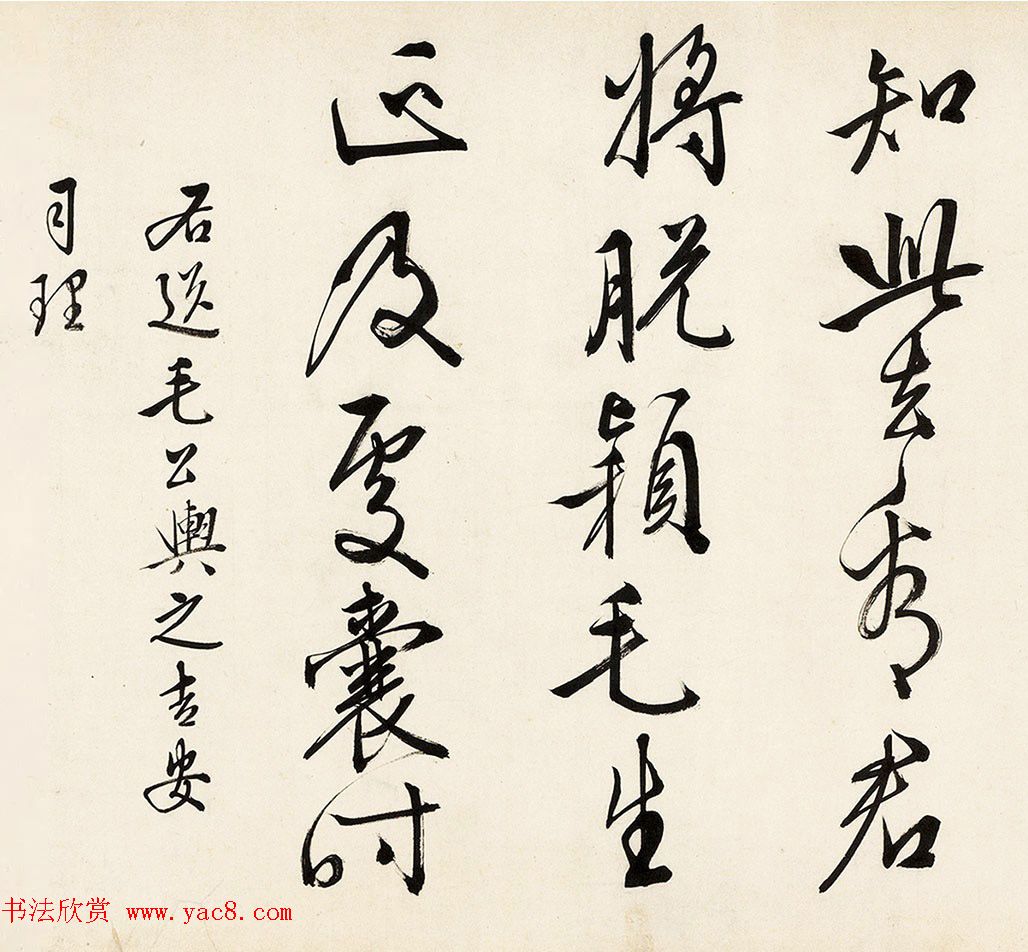 知此去看君
將脫穎毛生
正及處囊时
右送毛公輿之吉安
司理
书法欣赏 www.yac8.com